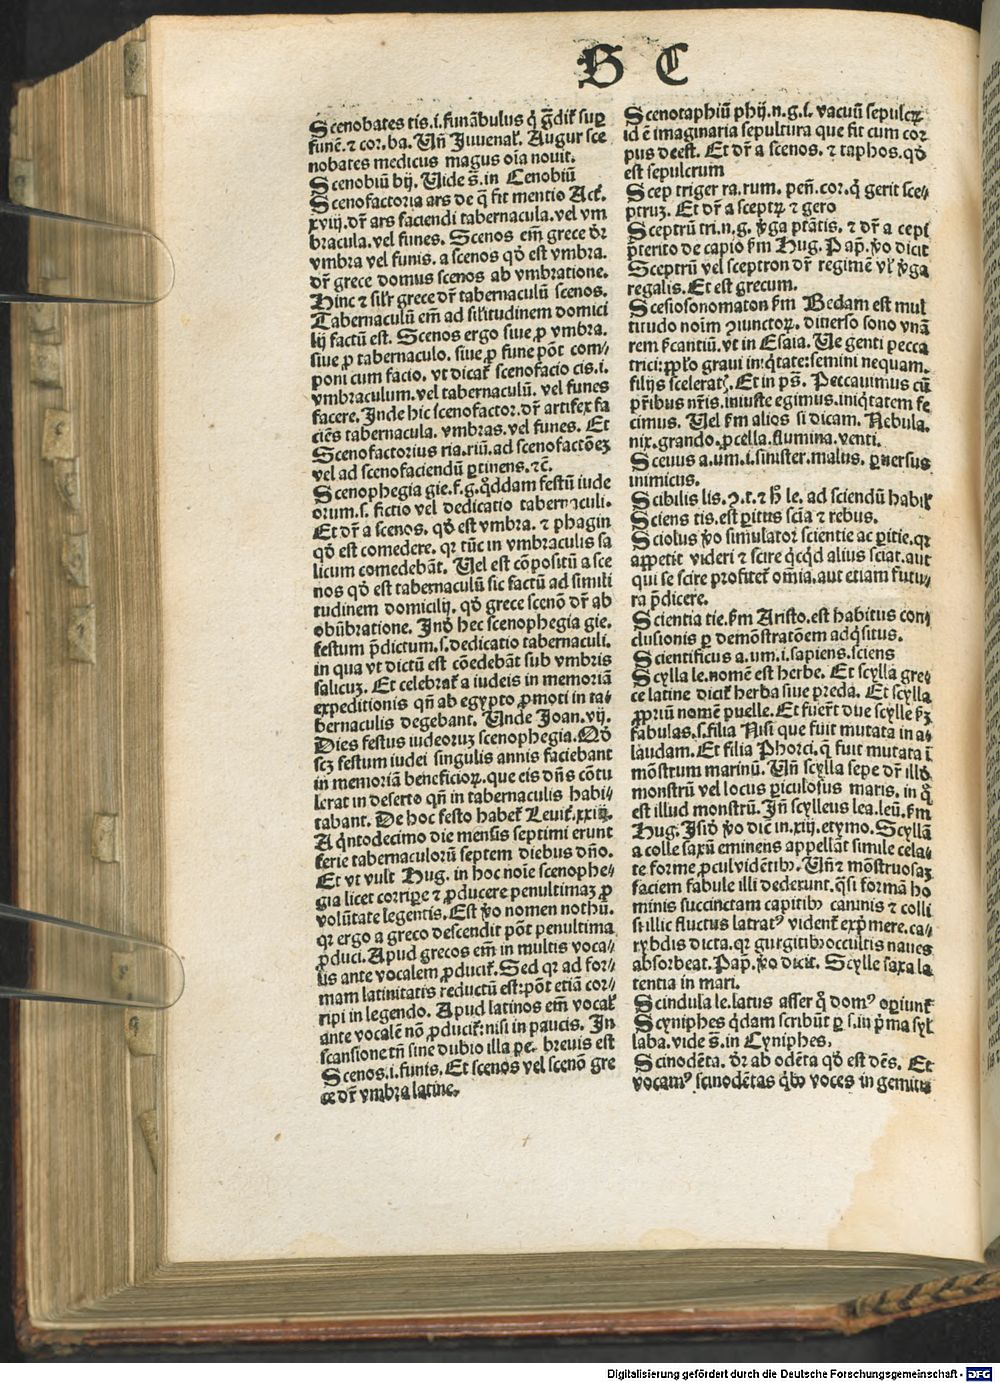 S C
Scenobates tis.i.funãbulus q̃ g̃dit᷑ sup
funẽ.⁊ cor.ba. Vñ Juuenal᷑. Augur sce
nobates medicus magus oĩa nouit.
Scenobiũ bij. Uide s̃.in Cenobiũ
Scenofactoria ars de q̃ fit mentio Act᷑.
xviij.dr̃ ars faciendi tabernacula.vel vm
bracula.vel funes. Scenos em̃ grece dr̃
vmbra vel funis. a scenos qđ est vmbra.
dr̃ grece domus scenos ab vmbratione.
Hinc ⁊ sil'r grece dr̃ tabernaculũ scenos.
Tabernaculũ em̃ ad sil'itudinem domici
lij factũ est. Scenos ergo siue ꝓ vmbra.
siue ꝓ tabernaculo. siue ꝓ fune põt com/
poni cum facio. vt dicat᷑ scenofacio cis.i.
vmbraculum.vel tabernaculũ. vel funes
facere. Inde hic scenofactor.dr̃ artifex fa
ciẽs tabernacula. vmbras.vel funes. Et
Scenofactorius ria.riũ.ad scenofactõez
vel ad scenofaciendũ ꝑtinens.⁊c̃.
Scenophegia gie.f.g.q̃ddam festũ iude
orum.s. fictio vel dedicatio tabernaculi.
Et dr̃ a scenos. qđ est vmbra. ⁊ phagin
qđ est comedere. qꝛ tũc in vmbraculis sa
licum comedebãt. Uel est cõpositũ a sce
nos qđ est tabernaculũ sic factũ ad simili
tudinem domicilij. qđ grece scenõ dr̃ ab
obũbratione. Inđ hec scenophegia gie.
festum p̃dictum.s.dedicatio tabernaculi.
in qua vt dictũ est cõedebãt sub vmbris
salicuz. Et celebrat᷑ a iudeis in memoriã
expeditionis qñ ab egypto ꝓmoti in ta/
bernaculis degebant. Unde Joan.vij.
Dies festus iudeoruz scenophegia. Qđ
scz festum iudei singulis annis faciebant
in memoriã beneficioꝝ.que eis dñs cõtu
lerat in deserto qñ in tabernaculis habi/
tabant. De hoc festo habet᷑ Leuit᷑.xxiij.
A q̃ntodecimo die mensis septimi erunt
ferie tabernaculorũ septem diebus dño.
Et vt vult Hug. in hoc noĩe scenophe/
gia licet corriꝑe ⁊ ꝓducere penultimaz ꝓ
volũtate legentis. Est ṽo nomen nothũ.
qꝛ ergo a greco descendit põt penultima
ꝓduci. Apud grecos em̃ in multis voca/
lis ante vocalem ꝓducit᷑. Sed qꝛ ad for/
mam latinitatis reductũ est:põt etiã cor/
ripi in legendo. Apud latinos em̃ vocal᷑
ante vocalẽ nõ ꝓducit᷑:nisi in paucis. In
scansione tñ sine dubio illa pe. breuis est
Scenos.i.funis. Et scenos vel scenõ gre
ce dr̃ vmbra latine.
Scenotaphiũ phij.n.g.i. vacuũ sepulcꝝ
id ẽ imaginaria sepultura que fit cum cor
pus deest. Et dr̃ a scenos. ⁊ taphos.qđ
est sepulcrum
Scep triger ra.rum. peñ.cor.q̃ gerit sce/
ptruz. Et dr̃ a sceptꝝ ⁊ gero
Sceptrũ tri.n.g. ṽga ptãtis. ⁊ dr̃ a cepi
p̃terito de capio ẜm Hug. Pap̃.ṽo dicit
Sceptrũ vel sceptron dr̃ regimẽ vl᷑ ṽga
regalis. Et est grecum.
Scesiosonomaton ẜm Bedam est mul
titudo noĩm ꝯiunctoꝝ. diuerso sono vnã
rem ẜcantiũ.vt in Esaia. Ue genti pecca
trici:pp̃lo graui iniq̃tate:semini nequam.
filijs scelerat᷑. Et in ps̃. Peccauimus cũ
pr̃ibus nr̃is.iniuste egimus.iniq̃tatem fe
cimus. Uel ẜm alios si dicam. Nebula.
nix.grando.ꝓcella.flumina.venti.
Sceuus a.um.i.sinister.malus. ꝑuersus
inimicus.
Scibilis lis.ꝯ.t.⁊ h̃ le. ad sciendũ habil᷑
Sciens tis.est ꝑitus sciẽa ⁊ rebus.
Sciolus ṽo simulator scientie ac ꝑitie.qꝛ
appetit videri ⁊ scire q̃cq̃d alius sciat.aut
qui se scire profitet᷑ om̃ia.aut etiam futu/
ra p̃dicere.
Scientia tie.ẜm Aristo.est habitus con/
clusionis ꝑ demõstratõem adq̃situs.
Scientificus a.um.i.sapiens.sciens
Scylla le.nomẽ est herbe. Et scylla gre/
ce latine dicit᷑ herba siue preda. Et scylla
ꝓpriũ nomẽ puelle. Et fuer̃t due scylle ẜz
fabulas.s.filia Nisi que fuit mutata in a/
laudam. Et filia Phorci.q̃ fuit mutata ĩ
mõstrum marinũ. Vñ scylla sepe dr̃ illđ
monstrũ vel locus ꝑiculosus maris. in q̃
est illud monstrũ. Iñ scylleus lea.leũ.ẜm
Hug. Isiđ ṽo dic̃ in.xiij.etymo. Scyllã
a colle saxũ eminens appellãt simile cela/
te forme ꝓcul vidẽtibꝫ. Vñ ⁊ mõstruosaz
faciem fabule illi dederunt.q̃si formã ho
minis succinctam capitibꝫ caninis ⁊ colli
si illic fluctus latratꝰ vident᷑ exp̃mere.ca/
rybdis dicta.qꝛ gurgitibꝫ occultis naues
absorbeat. Pap̃.ṽo dicit. Scylle saxa la
tentia in mari.
Scindula le.latus asser q̃ domꝰ oꝑiunt᷑
Scyniphes q̃dam scribũt ꝑ s.in p̃ma syl
laba.vide s̃.in Cyniphes.
Scinodẽta. dr̃ ab odẽta qđ est dẽs. Et
vocamꝰ scinodẽtas q̃bꝫ voces in gemitu
Digitalisierung gefördert durch die Deutsche Forschungsgemeinschaft - DFG